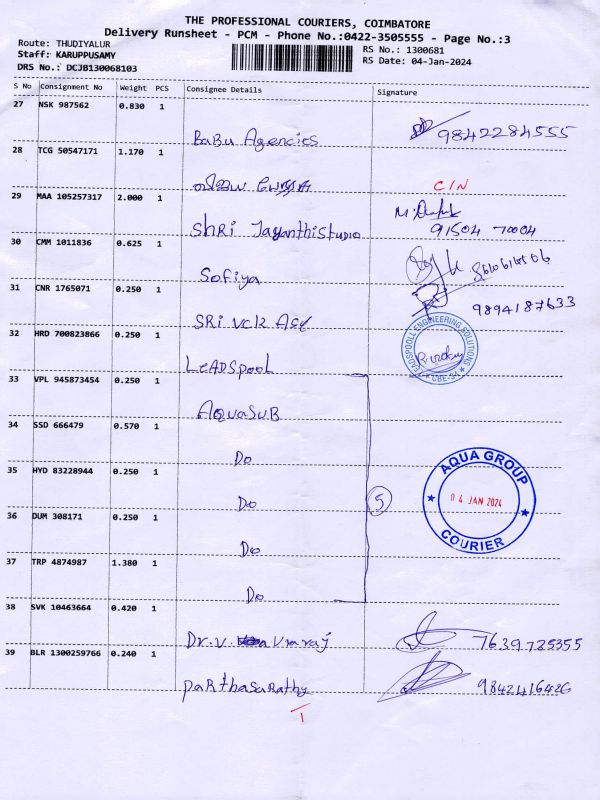 THE PROFESSIONAL COURIERS, COIMBATORE
Delivery Runsheet - PCM - Phone No.:0422-3505555 - Page No.:3
Route: THUDIYALUR
RS No.: 1300681
Staff: KARUPPUSAMY
RS Date: 04-Jan-2024
DRS No.: DCJB130068103
S No Consignment No Weight PCS Consignee Details Signature
27 NSK 987562 0.830 1
Babu Agencies 9842284555
28 TCG 50547171 1.170 1
C/N
29 MAA 105257317 2.000 1
Shri Jayanthi Studio 91504 70004
30 CMM 1011836 0.625 1
Sofiya
31 CNR 1765071 0.250 1
SRi VCK 9894187633
32 HRD 700823866 0.250 1
LeADSpooL
LEADSPOOLL ENGINEERING SOLUTIONS
CBE-34
33 VPL 945873454 0.250 1
AQuaSuB
34 SSD 666479 0.570 1
Do
35 HYD 83228944 0.250 1
Do
5
AQUA GROUP
04 JAN 2024
COURIER
36 DUM 308171 0.250 1
Do
37 TRP 4874987 1.380 1
Do
38 SVK 10463664 0.420 1
Dr. V. 7639725355
39 BLR 1300259766 0.240 1
paRthasaRathy 9842416426
1